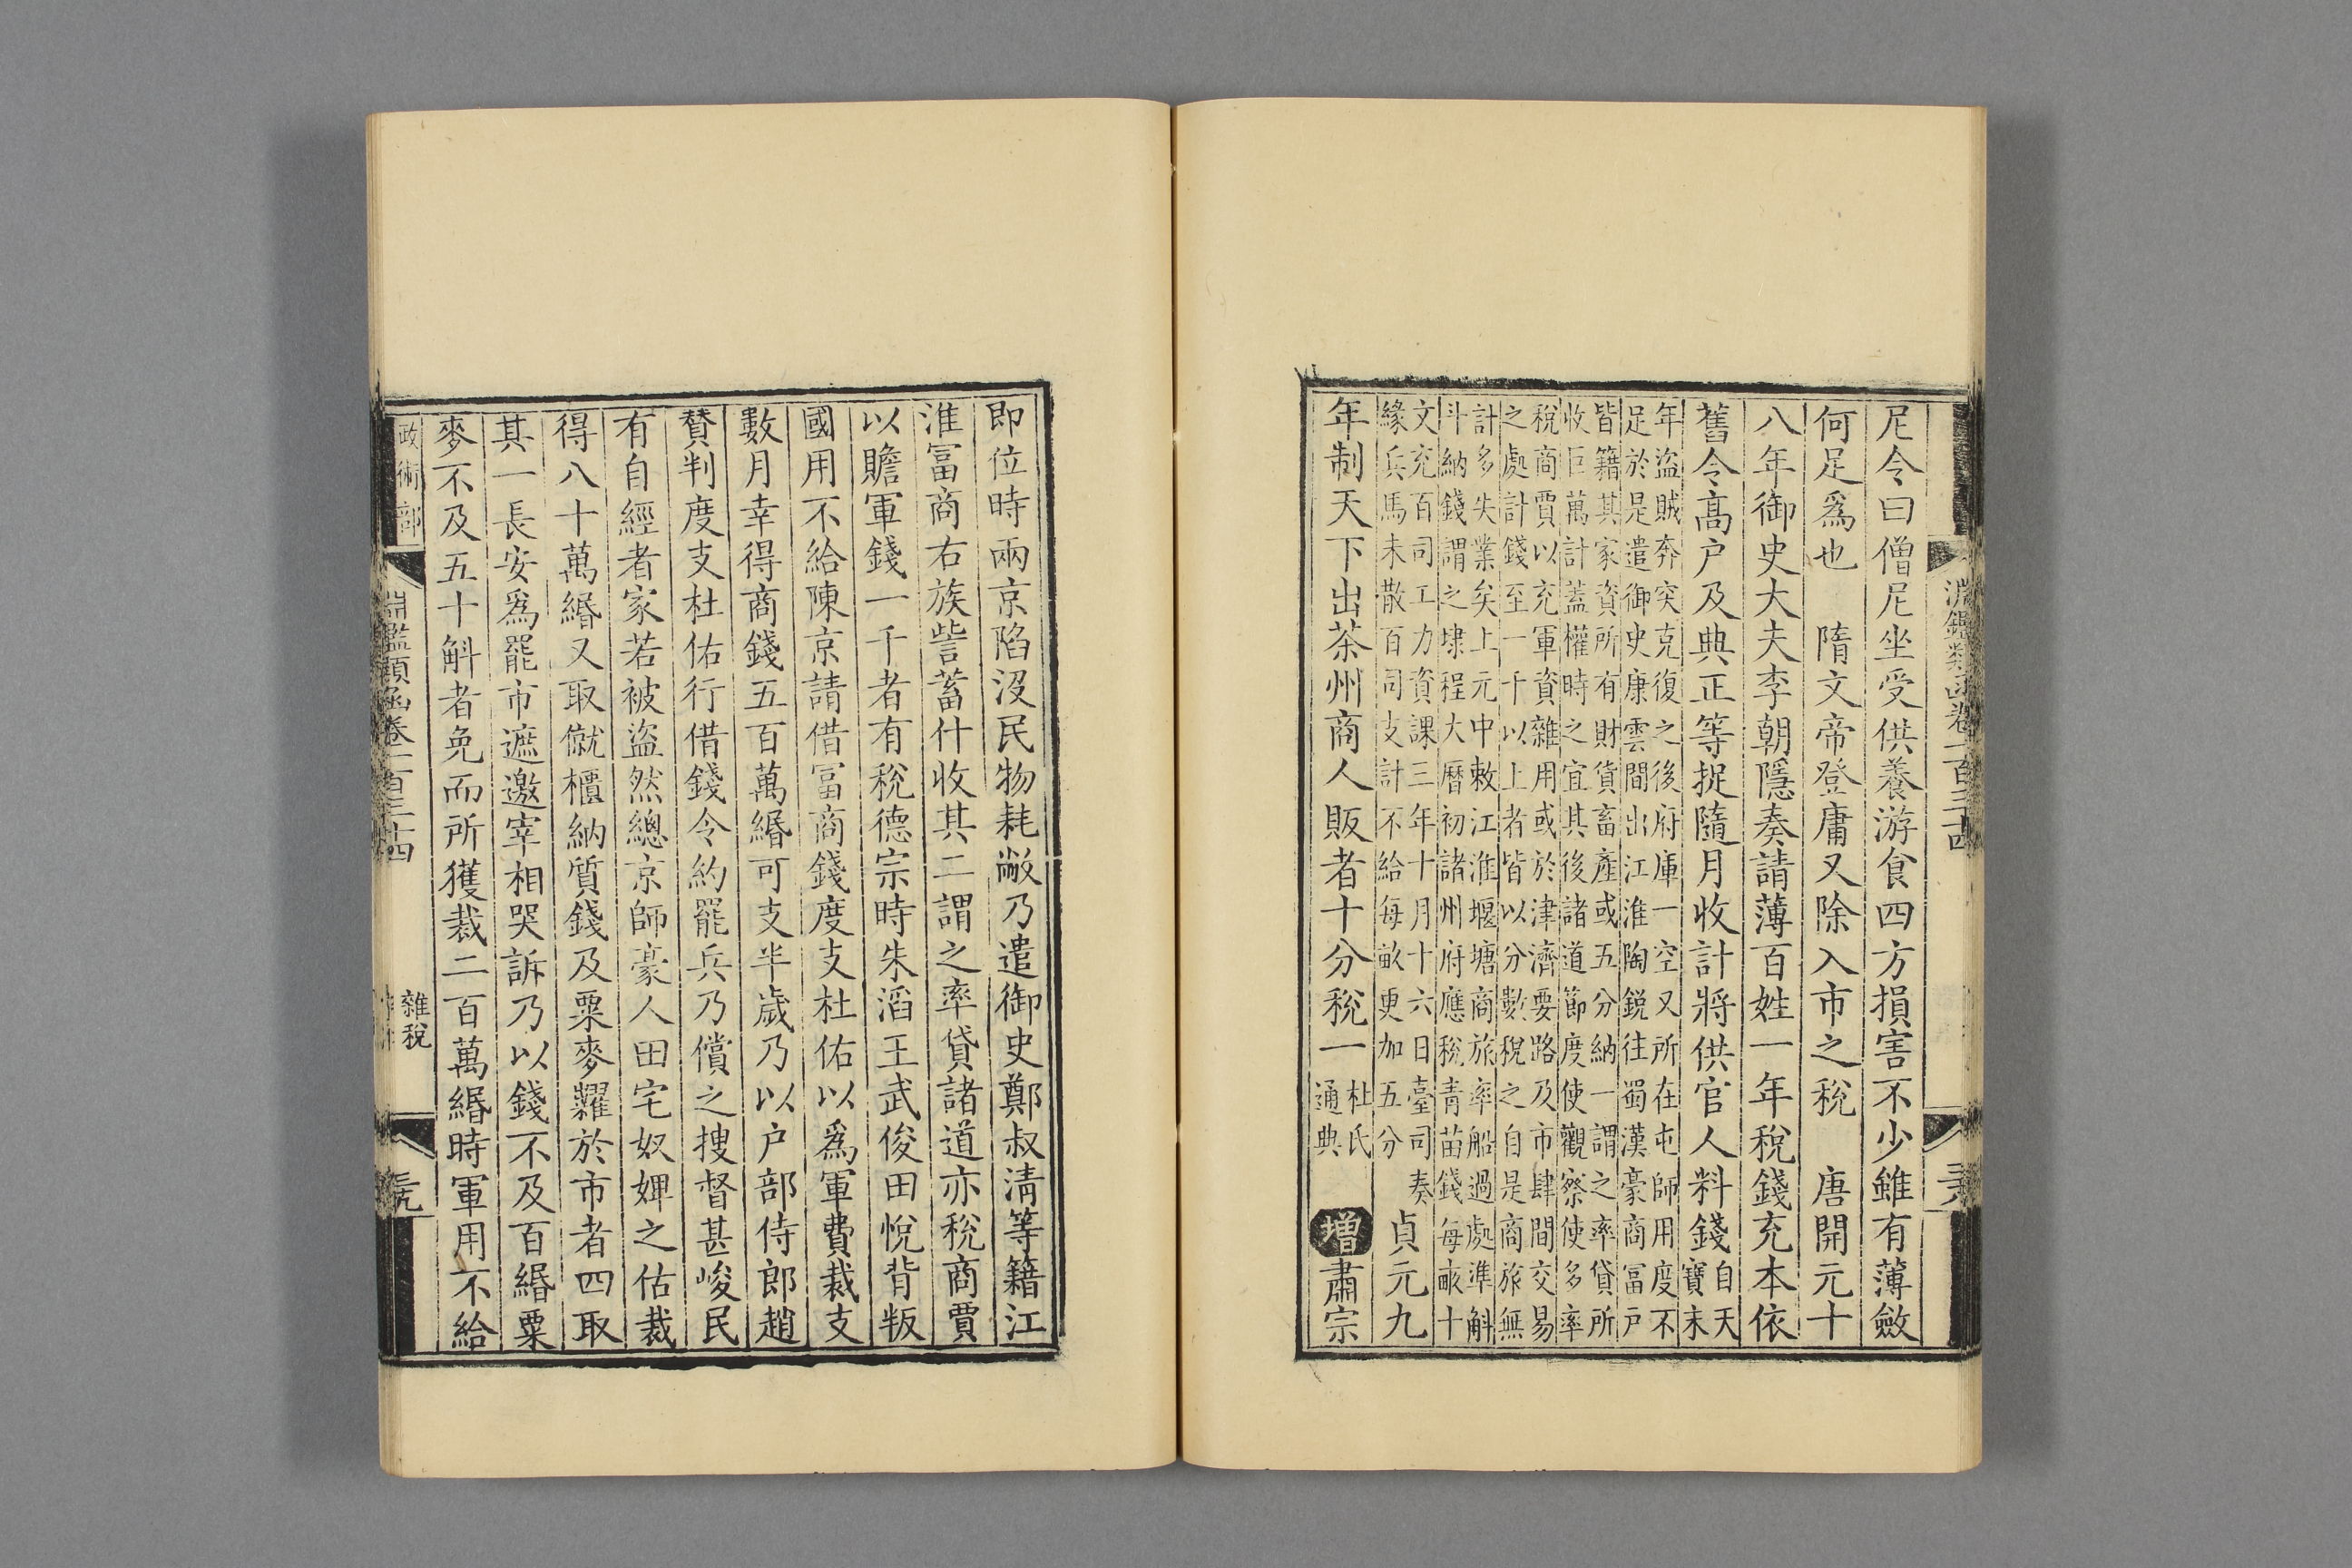 淵鑑類函卷一百三十四
尼令曰僧尼坐受供養游食四方損害不少雖有薄斂
何足爲也　隋文帝登庸又除入市之稅　唐開元十
八年御史大夫李朝隱奏請薄百姓一年稅錢充本依
舊令高户及典正等捉隨月收計將供官人料錢自天
寶末
年盜賊奔突克復之後府庫一空又所在屯師用度不
足於是遣御史康雲間出江淮陶銳往蜀漢豪商富户
皆籍其家資所有財貨畜產或五分納一謂之率貸所
收巨萬計蓋權時之宜其後諸道節度使觀察使多率
稅商賈以充軍資雜用或於津濟要路及市肆間交易
之處計錢至一千以上者皆以分數稅之自是商旅無
計多失業矣上元中敕江淮堰塘商旅率船過處準斛
斗納錢謂之埭程大曆初諸州府應稅青苗錢每畝十
文充百司工力資課三年十月十六日臺司奏
緣兵馬未散百司支計不給每畝更加五分
貞元九
年制天下出茶州商人販者十分稅一杜氏
通典
增肅宗
即位時兩京陷沒民物耗敝乃遣御史鄭叔清等籍江
淮富商右族訾蓄什收其二謂之率貸諸道亦稅商賈
以贍軍錢一千者有稅德宗時朱滔王武俊田悅背叛
國用不給陳京請借富商錢度支杜佑以爲軍費裁支
數月幸得商錢五百萬緡可支半歲乃以户部侍郎趙
贊判度支杜佑行借錢令約罷兵乃償之搜督甚峻民
有自經者家若被盜然總京師豪人田宅奴婢之估裁
得八十萬緡又取僦櫃納質錢及粟麥糶於市者四取
其一長安爲罷市遮邀宰相哭訴乃以錢不及百緡粟
麥不及五十斛者免而所獲裁二百萬緡時軍用不給
政術部
淵鑑類函卷一百三十四
雜稅